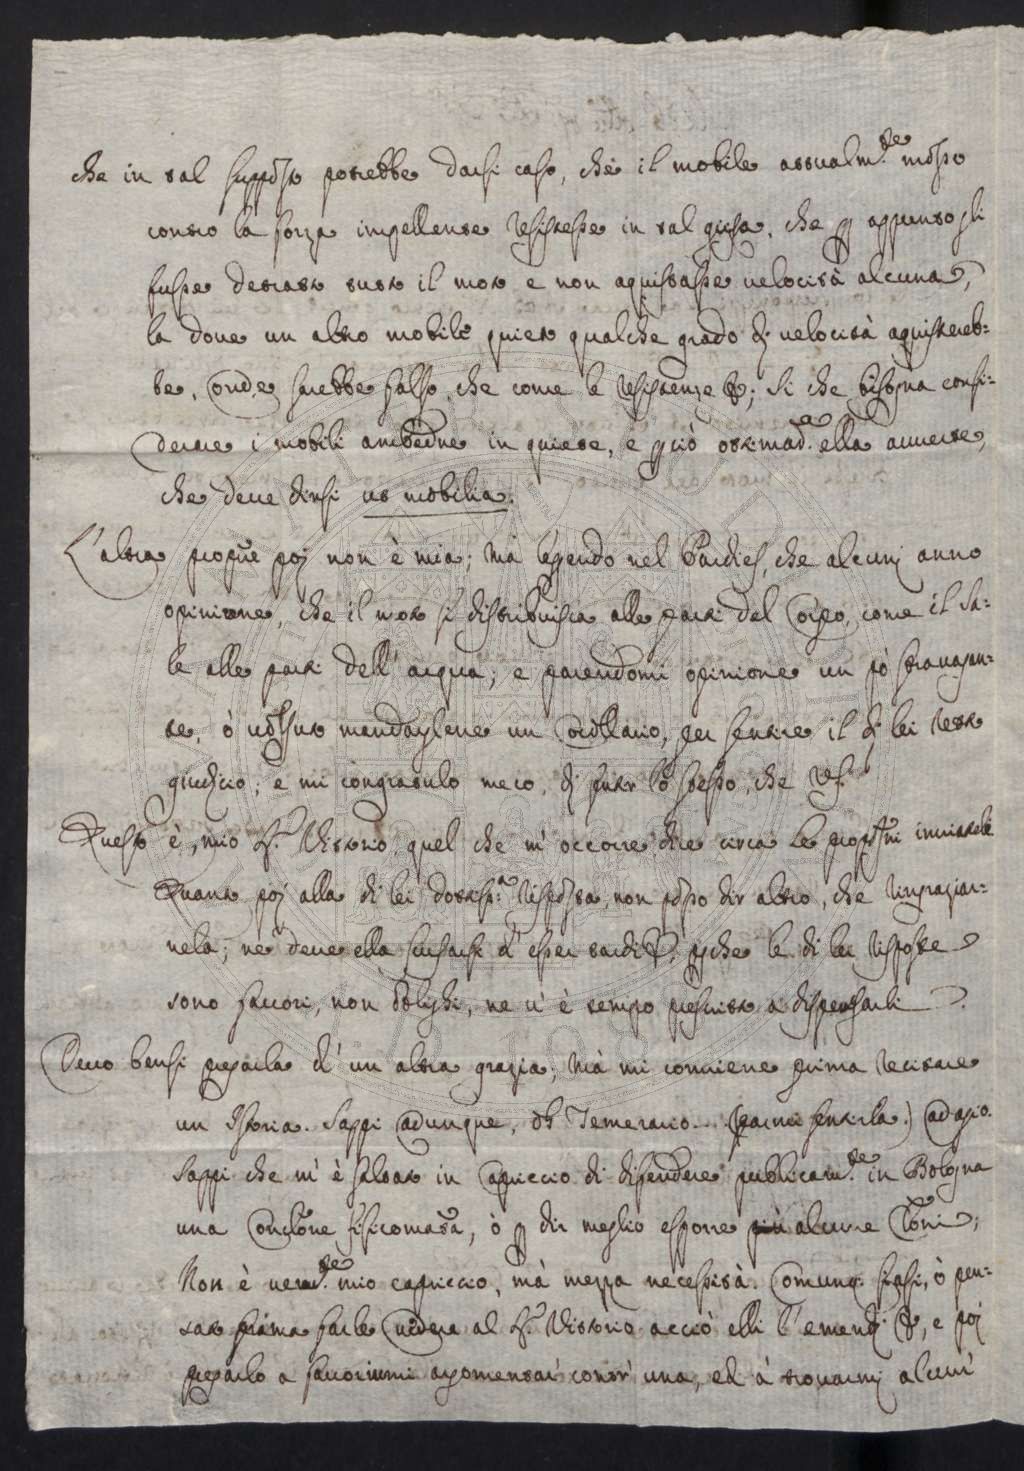 che in tal supposto potrebbe darsi caso, che il mobile attualm.te mosso
contro la forza impellente resistesse in tal guisa, che p appunto gli
fusse detratto tutto il moto e non aquistasse velocità alcuna,
la dove un altro mobile quieto qualche grado di velocità aquistereb-
be, onde sarebbe falso, che come le resistenze &; Si che bisogna consi-
derare i mobili ambedue in quiete, e p ciò ottimam.e ella avverte,
che deve dirsi ut mobilia.
L'altra propne poi non è mia; mà legendo nel Pardies, che alcuni anno
opinione, che il moto si distribuisca alle parti del Corpo, come il sa-
le alle parti dell'acqua; e parendomi opinione un pò stravagan-
te, ò voluto mandarglene un Corollario, per sentire il di lei retto
giudicio; e mi congratulo meco, di sentir lo stesso, che VS.
Questo è, mio Sr. Vittorio quel che m'occorre dire circa le propostni inviatele
Quanto poi alla di lei dottiss.a risposta, non posso dir altro, che ringraziar-
nela; ne deve ella scusarsi d'esser tardi &, pche le di lei risposte
sono favori, non oblighi, ne v'è tempo prescritto a dispensarli.
Devo bensi pregarla d'un altra grazia; Mà mi conviene prima recitare
un Istoria. Sappi adunque, oh Temerario... (parmi sentirla.) adagio.
Sappi che m'è saltato in capriccio di difendere publicam.te in Bologna
una Conclone fisicomata, ò p dir meglio esporre alcune Cloni;
Non è veram.te mio capriccio, mà mezza necessità. Comunq. siasi, ò pen-
sato prima farle vedere al Sr. Vittorio acciò elli l'emendi &, e poi
pregarlo a favorirmi argomentar contr'una, ed à trovarmi alcuni